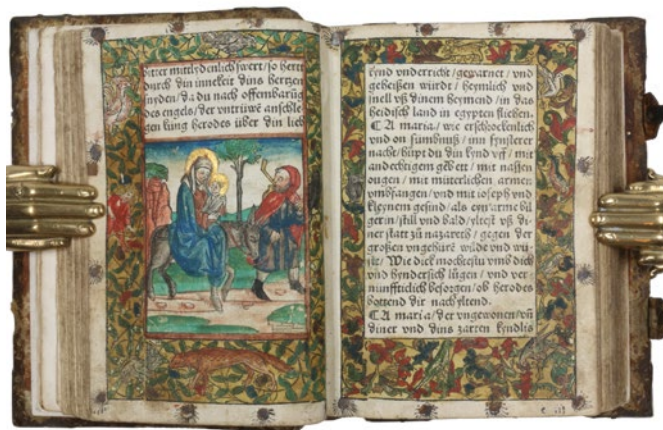 bitter mittlydenlich swert / so hertt
durch din innekeit dins hertzen
snyden / da du nach offembarūg
des engels / der vntrüwē anschle
gen küng herodes über din lieb
kynd vnderricht / gewarnet / vnd
geheißen würdt / heymlich vnd
snell vß dinem heymend / in das
heidisch land in egypten fliehen.
A maria / wie erschrockenlich
vnd on sumbnuß / inn fynsterer
nacht / hüpt du din kynd vff / mit
andechtigem gebett / mit nassen
ougen / mit müterlichen armen
vmbfangen / vnd mit ioseph vnd
kleynem gesind / als eyn arme bil
gerin / still vnd bald / yltest vß di-
ner statt zū nazareth / gegen der
großen vngehürē wilde vnd wü-
ste / Wie dick mochtestu vmb dich
vnd hyndersich lügen / vnd ver
nunffticlich besorgen / ob herodes
bottend dir nach yltend.
A maria / der vngewonen / vn̄
diner vnd dins zarten kyndlis